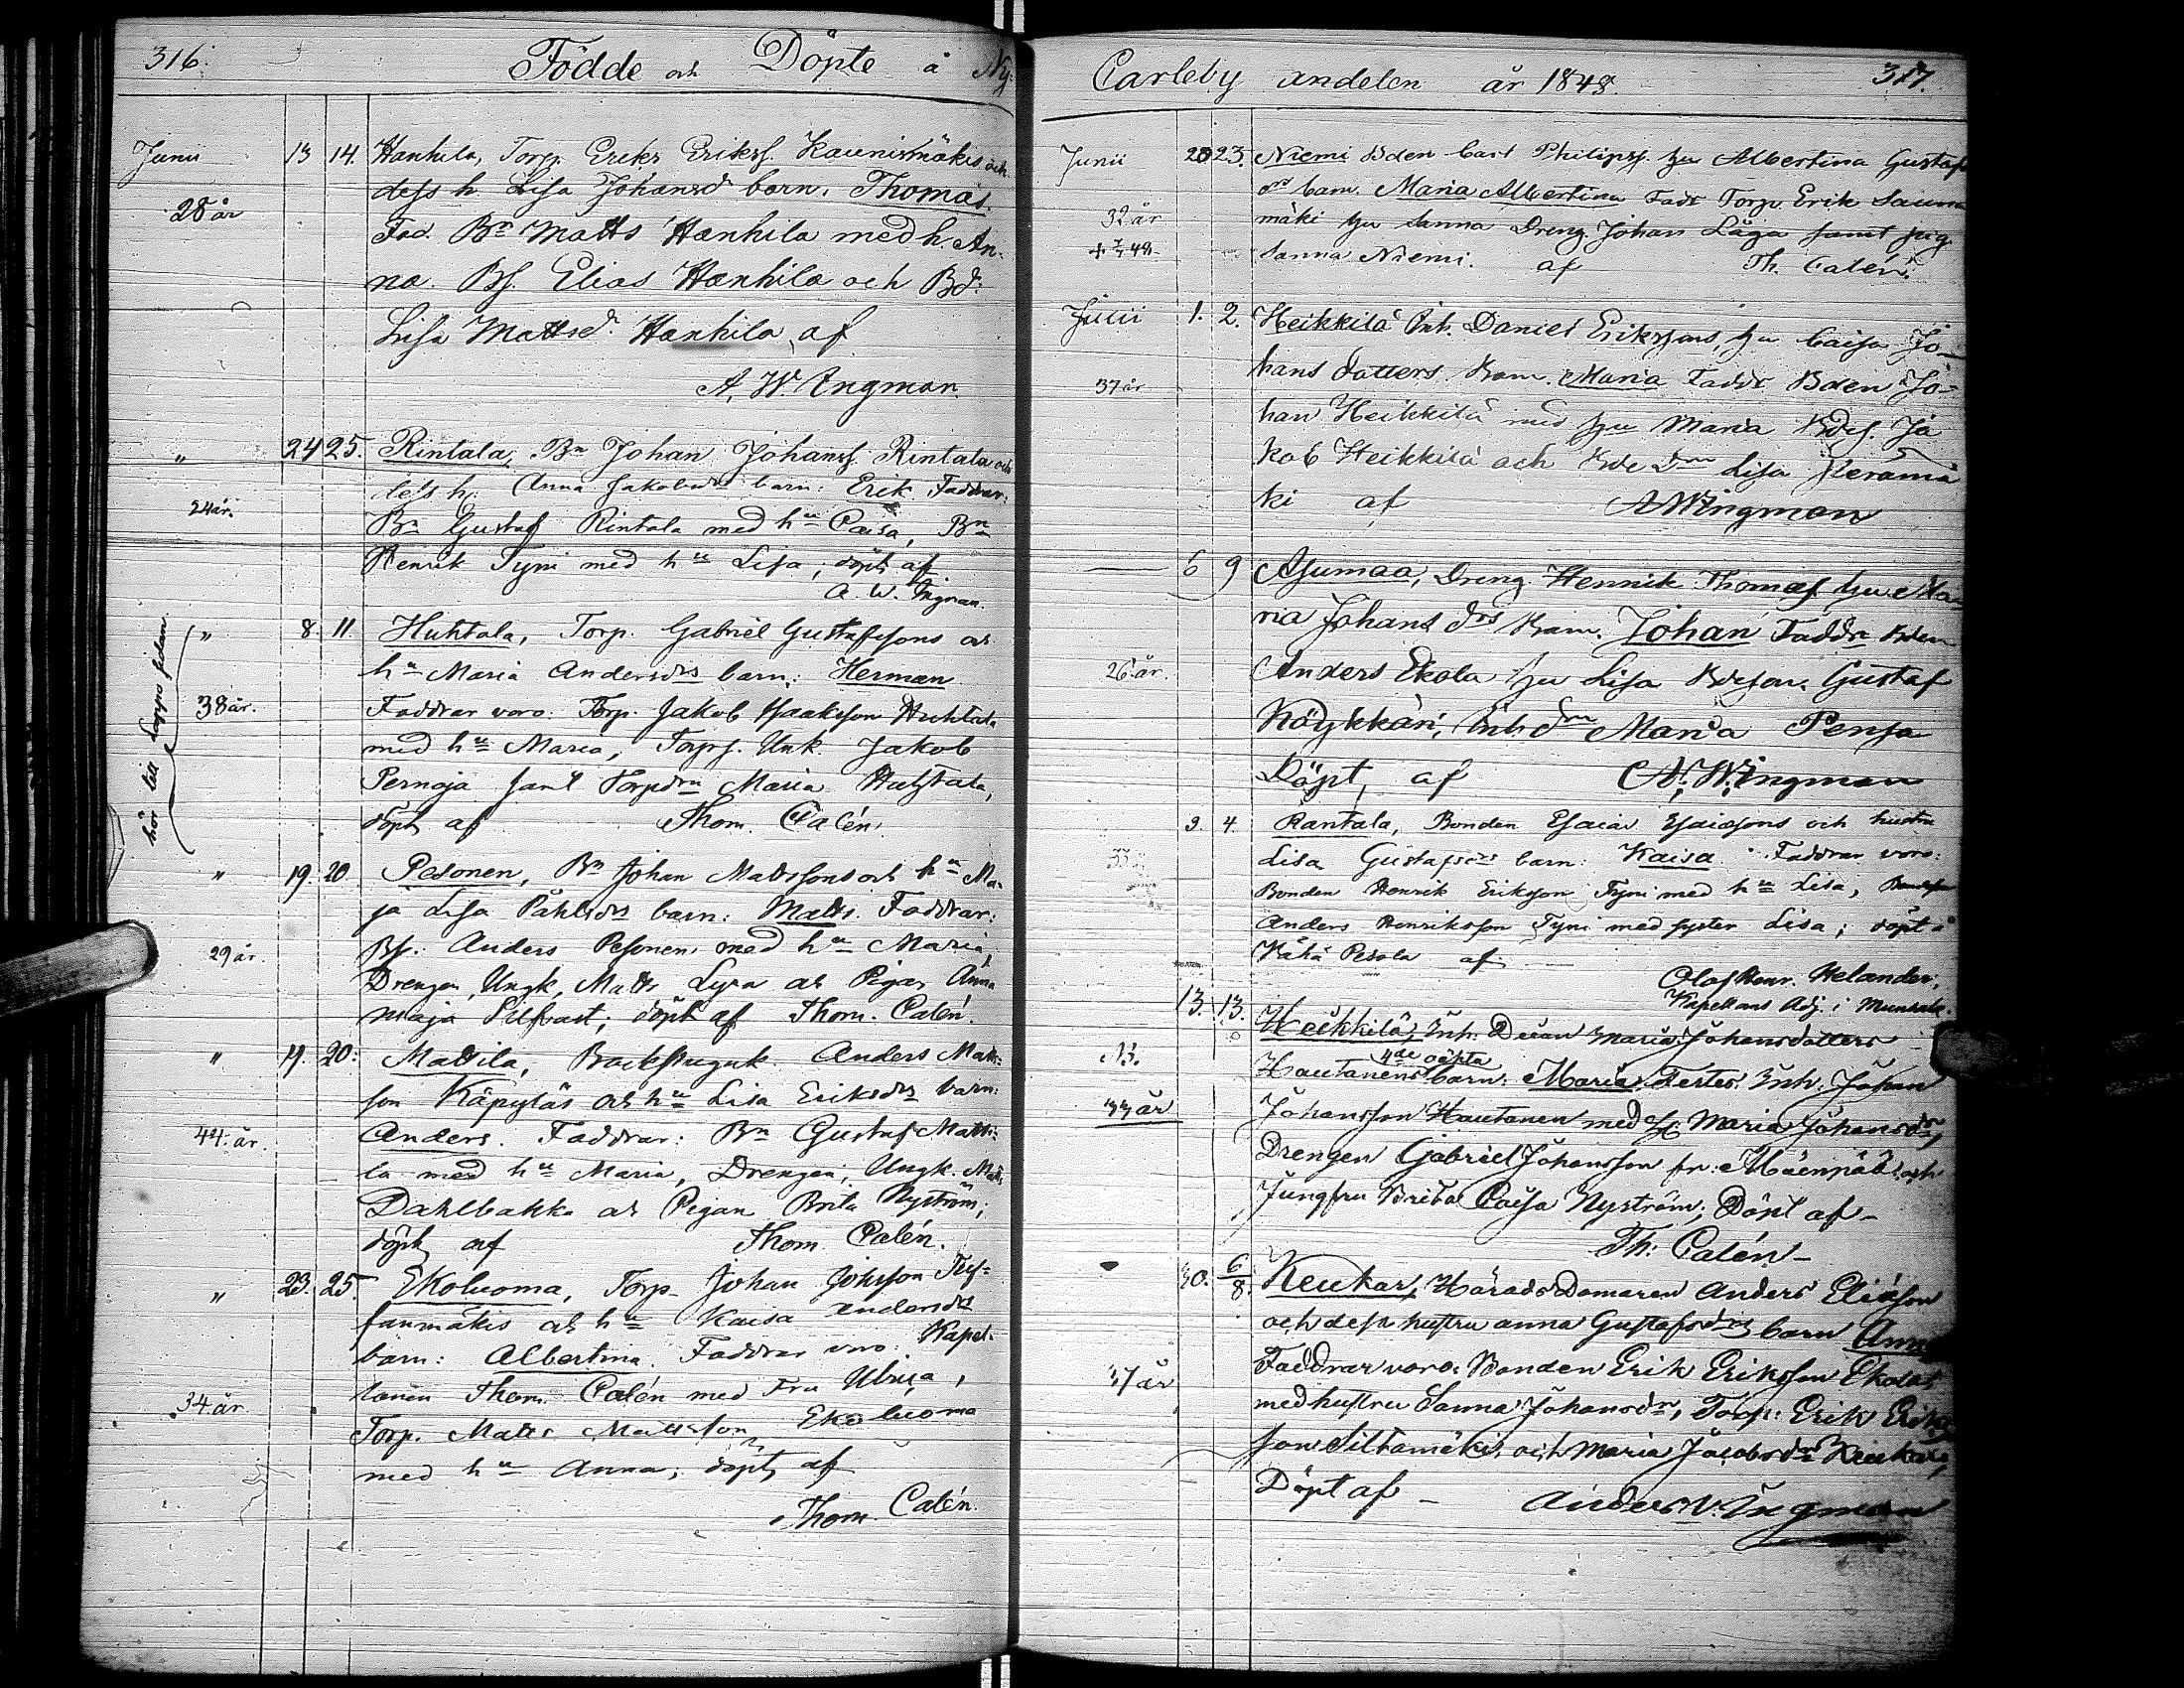 316.
Födde och Döpte å Ny-
Junii 13 14. Hanhila, Torp. Eriks Eriksf. Kaunismäkis och
dess h. Lisa Johansd barn. Thomas.
28 år
Fad. Bn Matts Hanhila med h. An-
na. Bs. Elias Hanhila och Bd:
Lisa Mattsd. Hanhila, af
A. W. Ingman.
" 24 25. Rintala, Bn Johan Johansf. Rintala och
dess h. Anna Jakobsdrs barn: Erik. Faddrar:
24 år.
Bn Gustaf Rintala med hu Caisa, Bn
Henrik Tyni med hu Lisa; döpt af
A. W. Ingman.
hör till Lappo sedan
" 8. 11. Huhtala, Torp. Gabriel Gustafssons och
hu Maria Andersdrs barn: Herman
38 år.
Faddrar voro: Torp. Jakob Isaaksson Huhtala
med hu Maria, Torprs. Unk Jakob
Pernaja samt Torpdrn Maria Huhtala,
döpt af Thom. Calén.
" 19. 20 Pesonen, Bn Johan Mattssons och hu Ma-
ja Lisa Påhlsdrs barn: Matts. Faddrar:
29 år.
Bs. Anders Pesonen med hu Maria,
Drengen, Ungk. Matts Lyra och Pigan Anna
Maja Silfvast; döpt af Thom. Calén.
" 19. 20: Mattila, Backstuguk. Anders Matts-
son Käpyläs och hu Lisa Eriksdrs barn:
44 år.
Anders. Faddrar: Bn Gustaf Matti-
la med hu Maria, Drengen, Ungk. Matts
Dahlbakka och Pigan Brita Nyström;
döpt af Thom. Calén.
" 23. 25. Ekoluoma, Torp. Johan Johsson Tuf-
fanmäkis och hu Kaisa Andersdrs
barn: Albertina. Faddrar voro: Kapel-
lanen Thom. Calén med Fru Ulrica,
34 år.
Torp. Matts Mattsson Ekoluoma
med hu Anna; döpt af
Thom. Calén.
Carleby andelen år 1848. 317.
Junii 20 23. Niemi Bden Carl Philipsf. hu Albertina Gustafs
drs barn. Maria Albertina Fadr Torp. Erik Sauna
32 år
mäki hu Sanna Dreng. Johan Låga samt pig.
Sanna Niemi. af Th. Calén.
Julii 1. 2. Heikkilä Inh. Daniel Erikssons, hu Caisa Jo-
hans dotters Barn. Maria Faddr. Bden Jo-
37 år
han Heikkilä med hu Maria Bdes. Ja
kob Heikkilä och Bde Drn Lisa Keramä
ki af A W Ingman
6 9 Ajumaa, Dreng. Henrik Thomasf. hu Ma-
ria Johans drs Barn. Johan Faddrr Bden
26 år.
Anders Ekola hu Lisa Bdeson. Gustaf
Köykkäri, Inh. drn Maria Pensa
Döpt, af A. W. Ingman
3. 4. Rantala, Bonden Esaias Esaiassons och hustru
Lisa Gustafsdrs barn: Kaisa. Faddrar voro:
Bonden Henrik Eriksson Tyni med hu Lisa, Bondeson
Anders Henriksson Tyni med syster Lisa; döpt å
Kähä Pesola af
Olof Henr. Helander,
Kapellans Adj. i Munsala.
13. 13. Heikkilä, Inh. Deian Maria Johansdotters
Hautanens 4de oäkta barn: Maria. Testes: Inh. Johan
33 år
Johansson Hautanen med h. Maria Johansdr,
Drengen Gabriel Johansson fr: Mäenpää och
Jungfru Brita Caisa Nyström; Döpt af
Th: Calén
30. 6/8. Keukar, Härads Domaren Anders Eliæson
och dess hustru Anna Gustafsdrs barn Anna
Faddrar voro: Bonden Erik Eriksson Ekola
37 år
med hustru Sanna Johansdr, Torp: Erik Eriks
son Siltamäki och Maria Jacobsdr Keukar,
Döpt af Anders W. Ingman